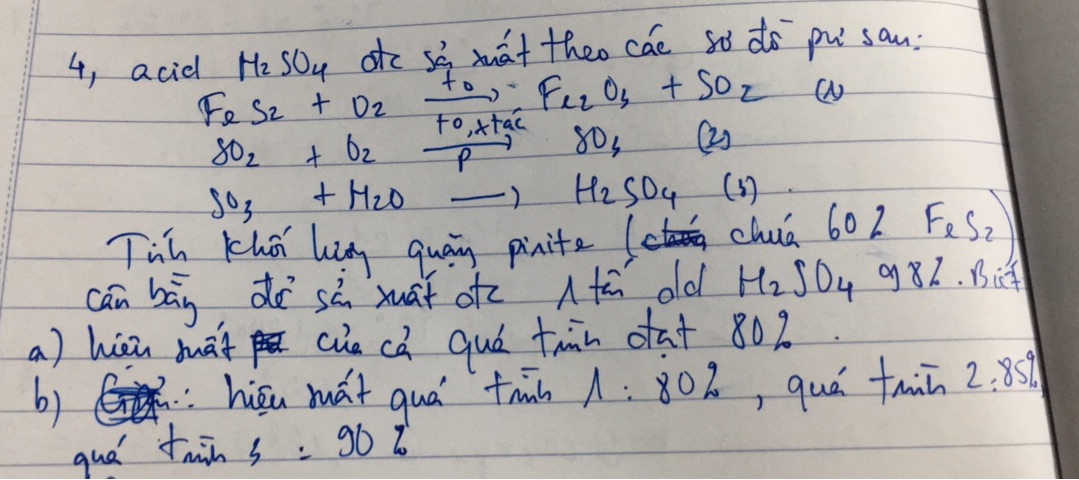 4, acid H2SO4 đc sả xuất theo các sơ đồ pứ sau:
FeS2 + O2 →(to) Fe2O3 + SO2 (1)
SO2 + O2 →(to, xtác, P) SO3 (2)
SO3 + H2O → H2SO4 (3)
Tính khối lượng quặng pirite (chứa 60% FeS2)
cần bằng để sản xuất đc 1 tấn dd H2SO4 98%. Biết
a) hiệu suất của cả quá trình đạt 80%.
b) hiệu suất quá trình 1: 80%, quá trình 2: 85%,
quá trình 3: 90%